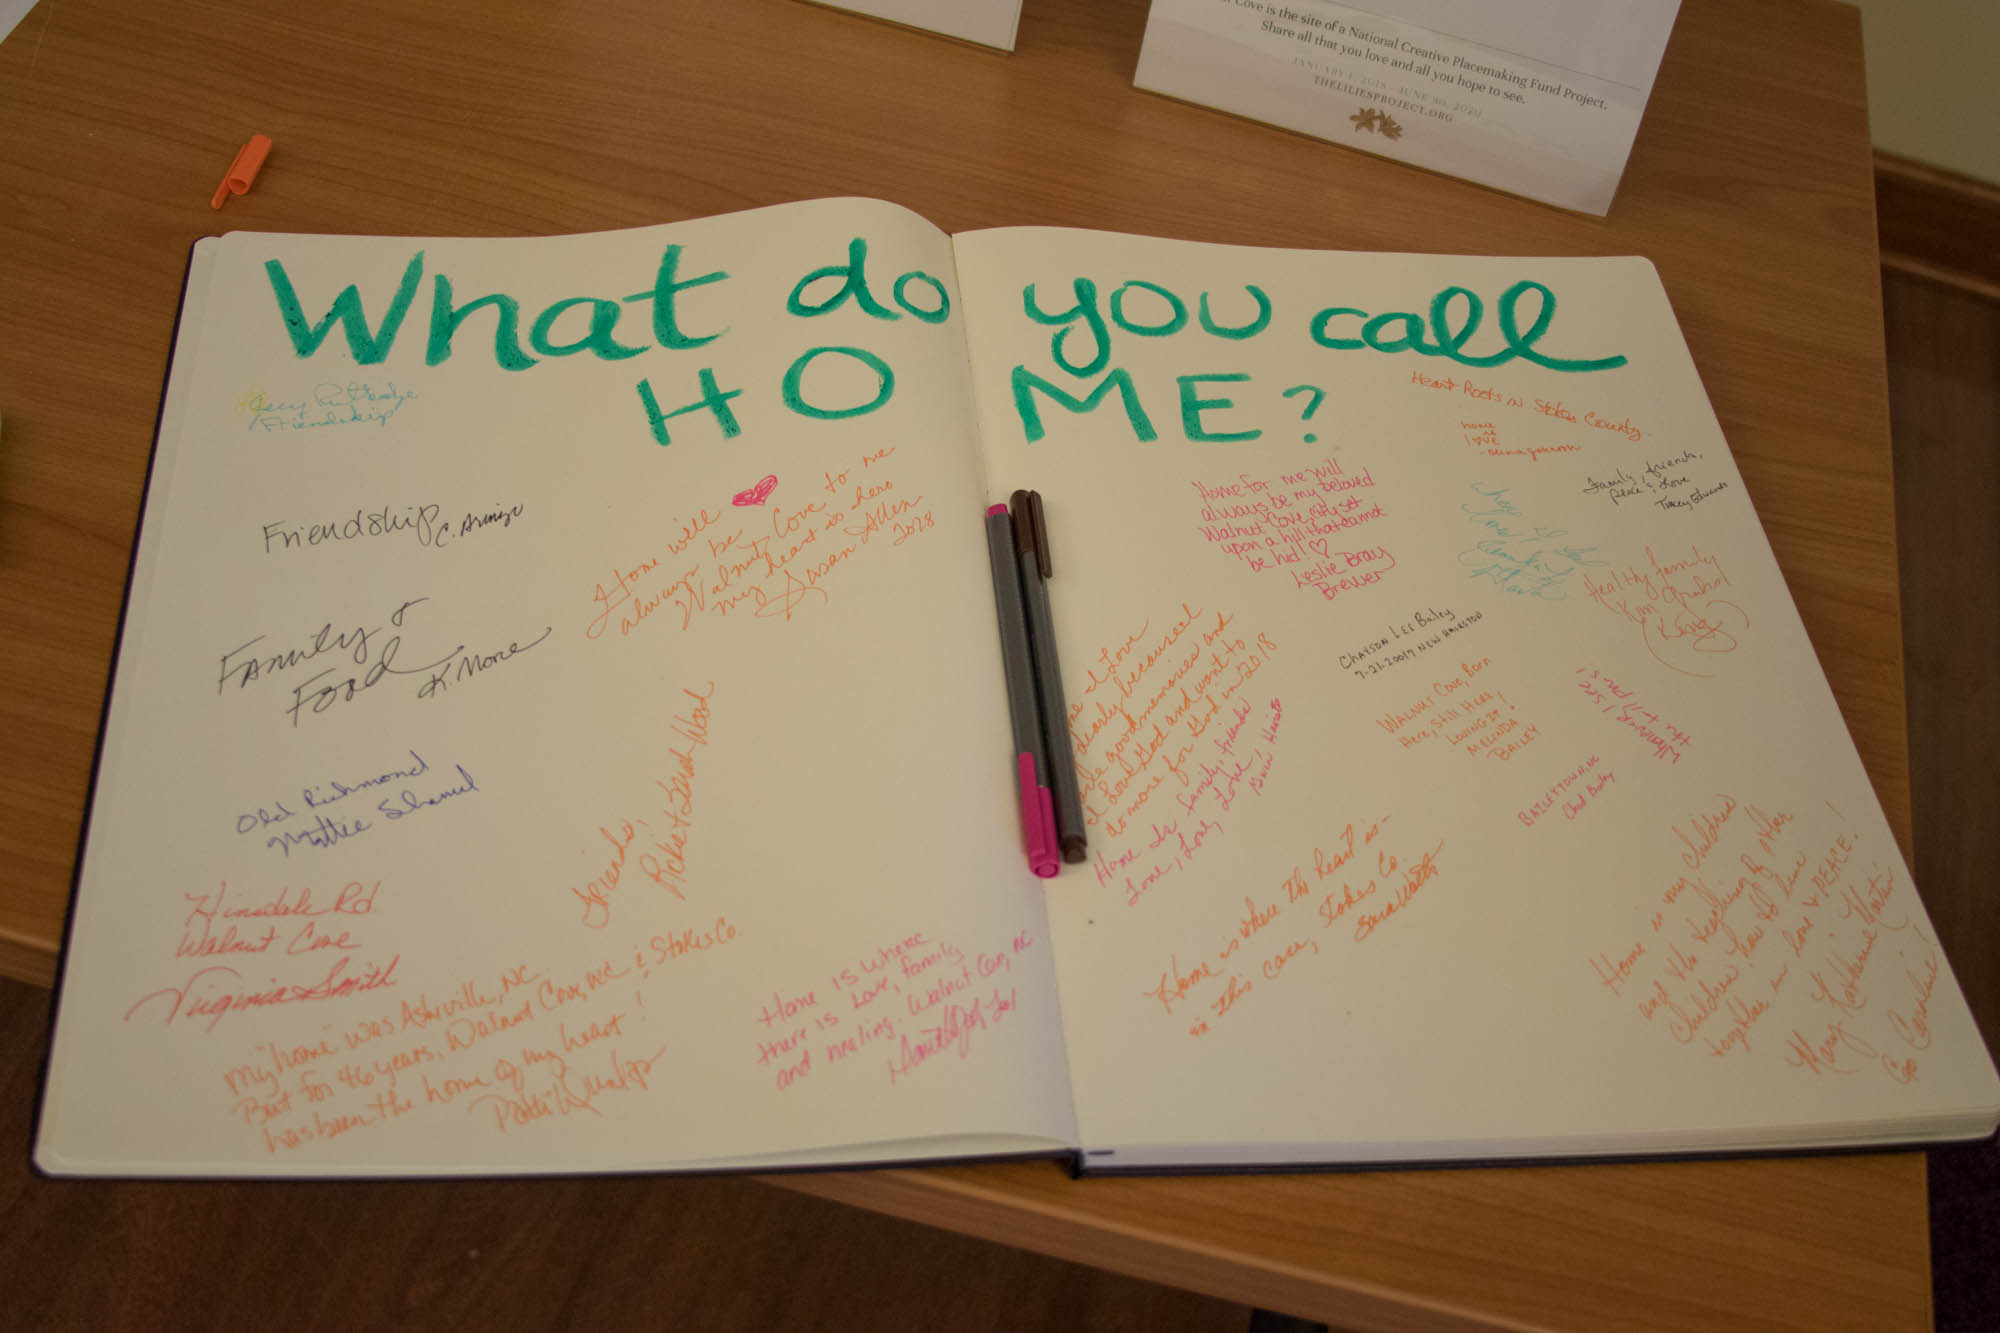 Cove is the site of a National Creative Placemaking Fund Project.
Share all that you love and all you hope to see.
JANUARY 1, 2018 - JUNE 30, 2020
THELILIESPROJECT.ORG
What do you call
HOME?
Friendship
Friendship
C. Armijo
Family &
Food
K. More
Old Richmond
Mattie Shamel
Hinsdale Rd
Walnut Cove
Virginia Smith
my "home" was Asheville, NC
But for 46 years, Walnut Cove, NC & Stokes Co
has been the home of my heart!
Patti Dunlap
Home will
always be
Walnut Cove to me
my heart is here
Susan Allen
2028
Friends,
Rickie & Sarah Wood
Home is where
there is Love, family
and healing. Walnut Cove, NC
Heart Roots in Stokes County.
home
is
love
Family, friends,
peace & love
Tracey Edwards
Home for me will
always be my beloved
Walnut Cove, city set
upon a hill that cannot
be hid! ♡
Leslie Bray
Brewer
Healthy family
Kim
Chayson Lee Bailey
7-21-20017 NEW HAIRSTON
Walnut Cove, Born
Here, Still Here
Loving It!
MELINDA
BAILEY
Wherever I See
BAILEYTOWN, NC
Chad Bailey
me I Love
dearly because
good memories and
I Love God and want to
do more for God in 2018
Home Is family, friends
Love, Love, Love, Love
Home is where the heart is -
in this case, Stokes Co.
Home is my children
and the teaching of other
children how to live
together in love & PEACE!
Mary Katherine Martin
Go Carolina!